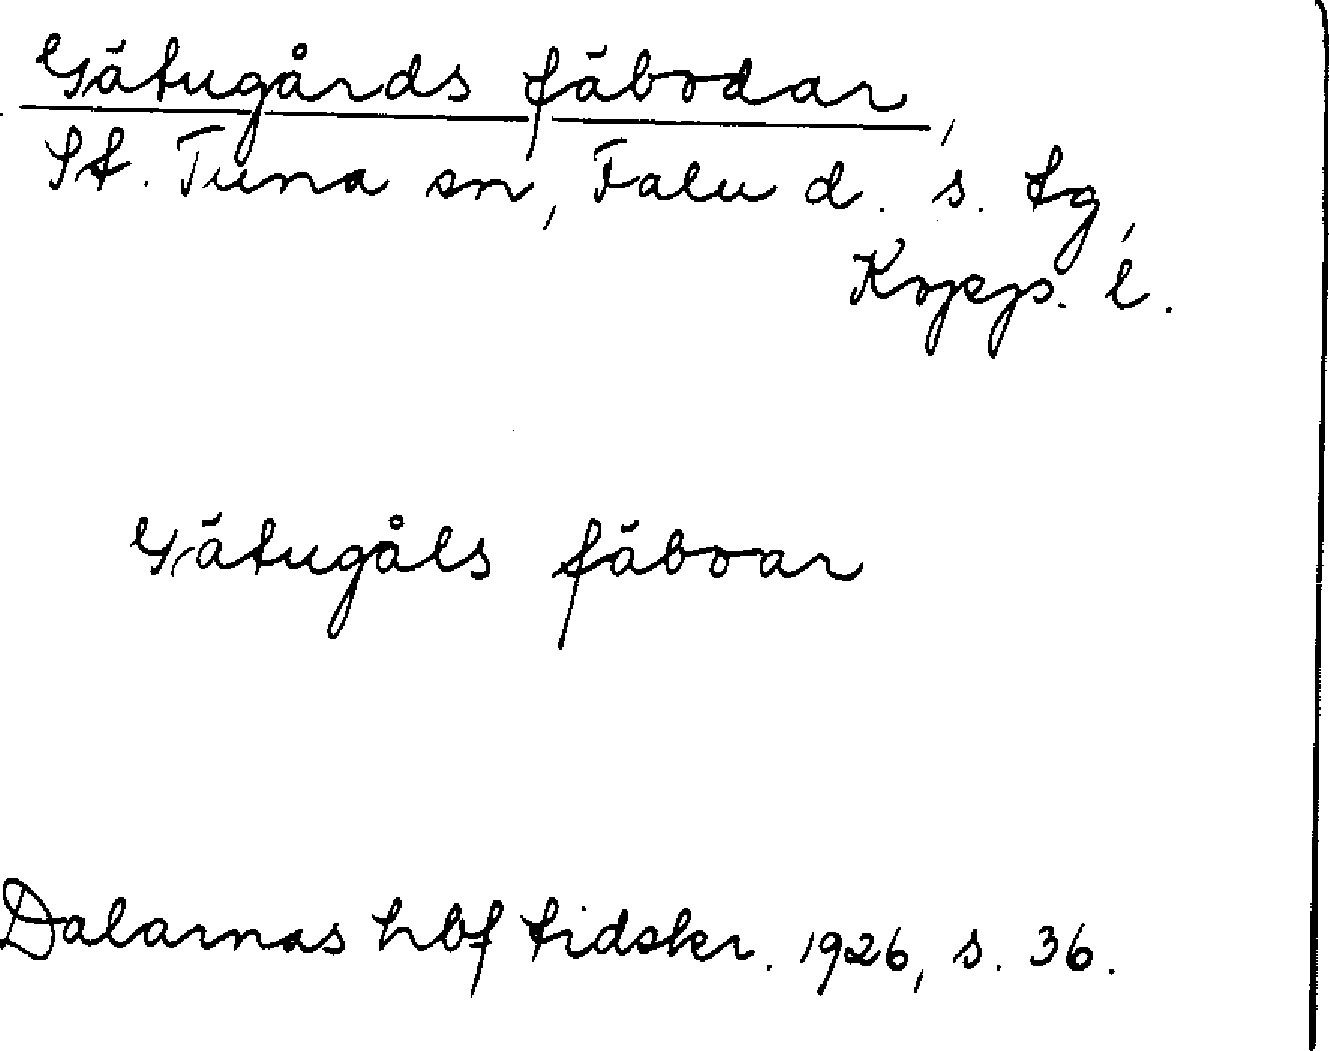 Gätugårds fäbodar,
St. Tuna sn, Falu d. s. tg,
Kopp. l.
Gätugåls fäboar
Dalarnas hbf tidskr. 1926, s. 36.